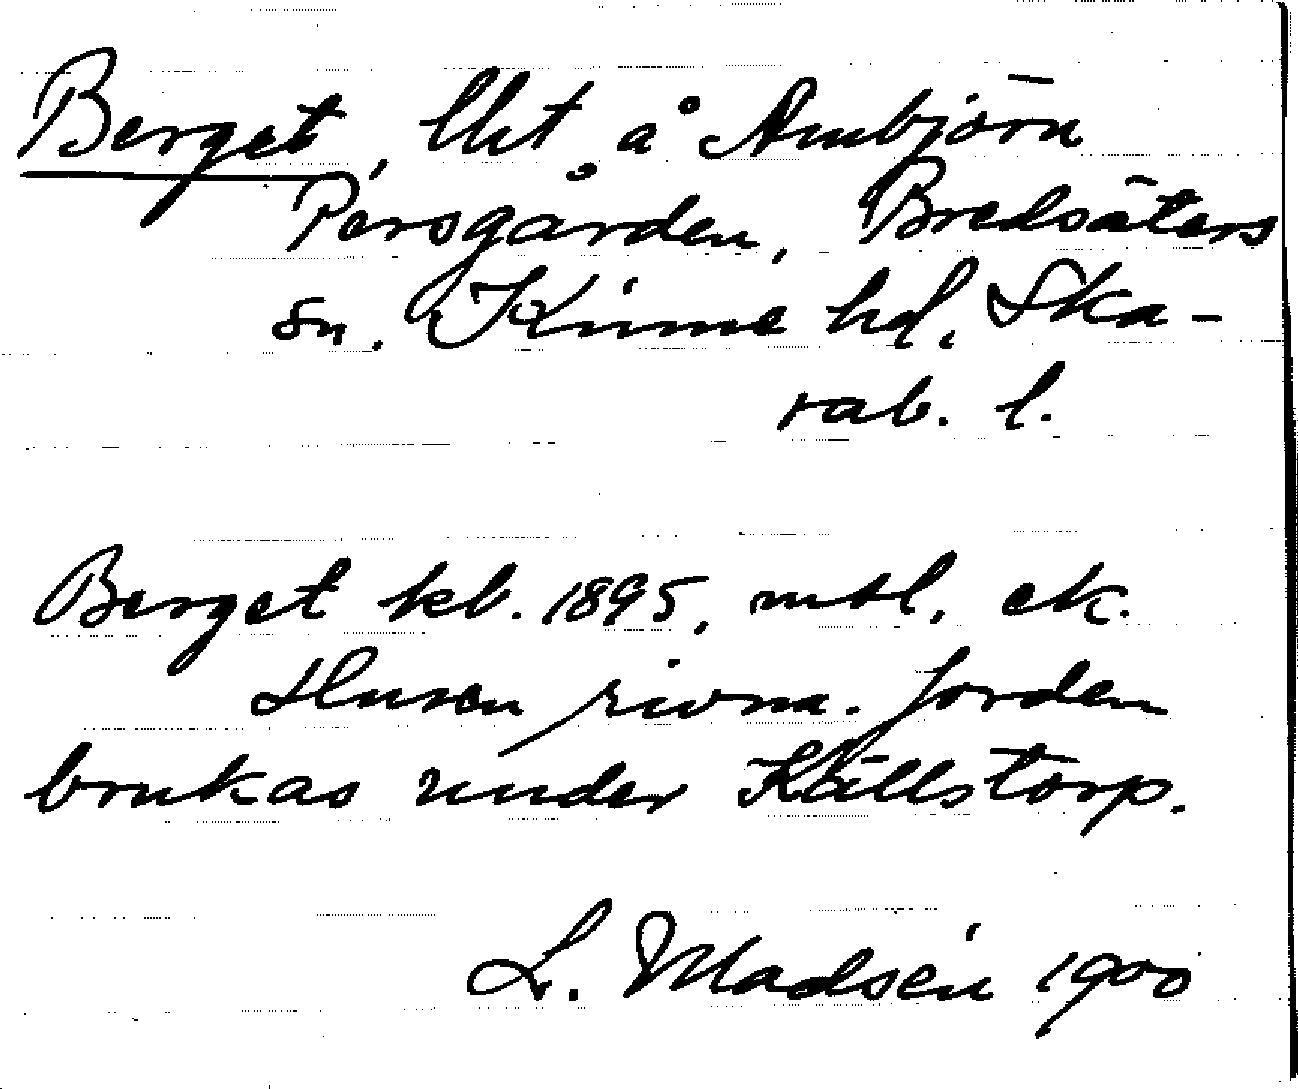 Berget, lht å Ambjörn
Persgården, Bredsäters
sn. Kinne hd. Ska-
rab. l.
Berget kb. 1895, mtl, ek.
Husen rivna. Jorden
brukas under Källstorp.
L. Madsén 1900